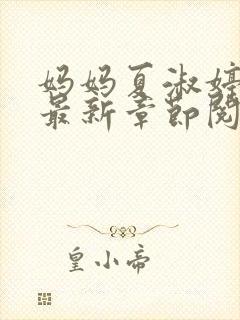 妈妈夏淑婷
最新章节阅
皇小帝